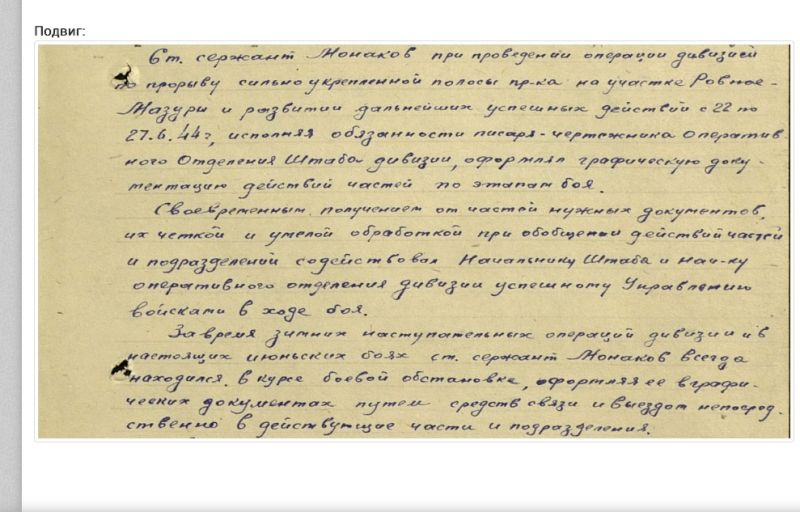 Подвиг:
Ст. сержант Монаков при проведении операции дивизией
по прорыву сильно укрепленной полосы пр-ка на участке Ровное-
Мазуры и развитии дальнейших успешных действий с 22 по
27.6.44г, исполняя обязанности писаря-чертежника Оператив-
ного Отделения Штаба дивизии, оформлял графическую доку-
ментацию действий частей по этапам боя.
Своевременным получением от частей нужных документов,
их четкой и умелой обработкой при обобщении действий частей
и подразделений содействовал Начальнику Штаба и нач-ку
оперативного отделения дивизии успешному Управлению
войсками в ходе боя.
За время зимних наступательных операций дивизии и в
настоящих июньских боях ст. сержант Монаков всегда
находился в курсе боевой обстановке, оформляя ее в графи-
ческих документах путем средств связи и выездом непосред-
ственно в действующие части и подразделения.